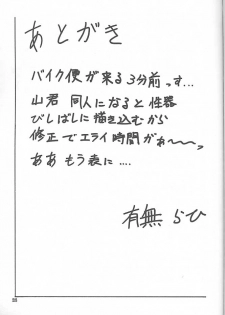 あとがき
バイク便が来る3分前っす…
山君 同人になると性器
びしばしに描き込むから
修正でエライ時間がぁ〜〜っ
ああ もう表に….
有無らひ